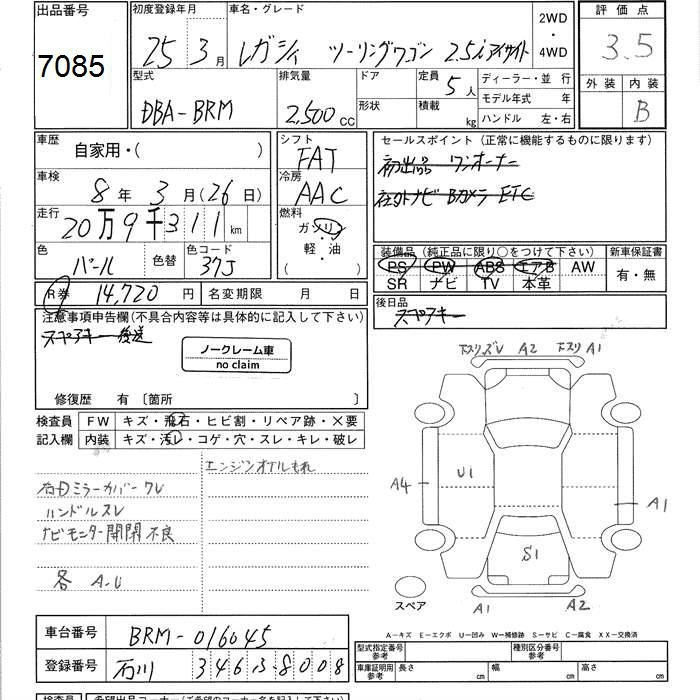 出品番号
7085
初度登録年月
25 3月
車名・グレード
レガシィ ツーリングワゴン 2.5iアイサイト
2WD
・
4WD
評価点
3.5
外装 内装
B
型式
DBA-BRM
排気量
2,500 CC
ドア
形状
定員
5人
積載
kg
ディーラー・並行
モデル年式 年
ハンドル 左・右
車歴
自家用・( )
車検
8年 3月(26日)
走行
20万9千311 km
色
パール
色替
色コード
37J
シフト
FAT
冷房
AAC
燃料
ガソリン
軽・油
( )
セールスポイント(正常に機能するものに限ります)
初出品 ワンオーナー
社外ナビ Bカメラ ETC
装備品(純正品に限り○をつけて下さい)
PS PW ABS エアB AW
SR ナビ TV 本革
新車保証書
有・無
R券 14,720円
名変期限 月 日
後日品
スペアキー
注意事項申告欄(不具合内容等は具体的に記入して下さい)
スペアキー 後送
ノークレーム車
no claim
修復歴 有〔箇所 〕
検査員
記入欄
FW キズ・飛石・ヒビ割・リペア跡・X要
内装 キズ・汚レ・コゲ・穴・スレ・キレ・破レ
エンジンオイルもれ
右Dミラーカバーワレ
ハンドルスレ
ナビモニター開閉不良
各 A.U
下スリズレ A2 下スリ A1
A4
U1
A1
S1
A1 A2
スペア
A-キズ E-エクボ U-凹み W-補修跡 S-サビ C-腐食 XX-交換済
車台番号
BRM-016045
登録番号
石川 346 ひ 8008
型式指定番号
参考
種別区分番号
参考
車庫証明用
参考
長さ cm
幅 cm
高さ cm